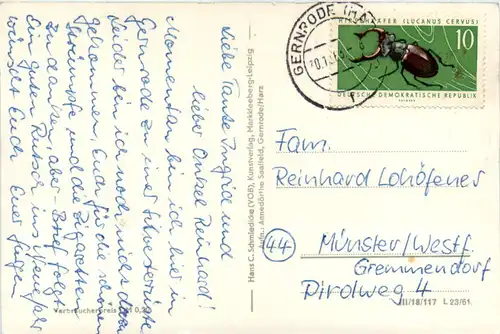 Liebe Tante Ingrid und
lieber Onkel Reinhard!
Momentan bin ich hier in
Gernrode zu einer Silvesterreise
Leider bin ich noch nicht dazu
gekommen, Euch für die schönen
Strümpf. und die Zigaretten
zu danken, aber - Brief folgt.
Ein guten Rutsch ins Neue Jahr
wünscht Euch Euer Jürgen
Verbraucherpreis 0,20
Hans C. Schmiedicke (VOB), Kunstverlag, Markkleeberg-Leipzig
Annedörthe Saalfeld, Gernrode/Harz
GERNRODE (HARZ)
HIRSCHKÄFER (LUCANUS CERVUS)
10
DEUTSCHE DEMOKRATISCHE REPUBLIK
Fam.
Reinhard Lohöfener
(44) Münster/Westf.
Gremmendorf
Pirolweg 4
III/18/117 L 23/61